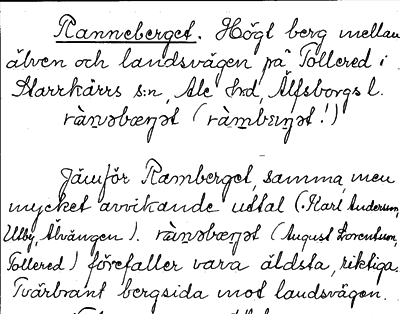 Ranneberget. Högt berg mellan
älven och landsvägen på Tollered i
Starrkärrs s:n, Ale hd, Älfsborgs l.
ràn̲əbæŋət (ràm̲bɛŋət!)
Jämför Ramberget, samma, men
mycket avvikande uttal (Karl Andersson,
Utby, Älvängen). ràn̲əbæŋət (August Lorentsson,
Tollered) förefaller vara äldsta, riktiga.
Tvärbrant bergsida mot landsvägen.